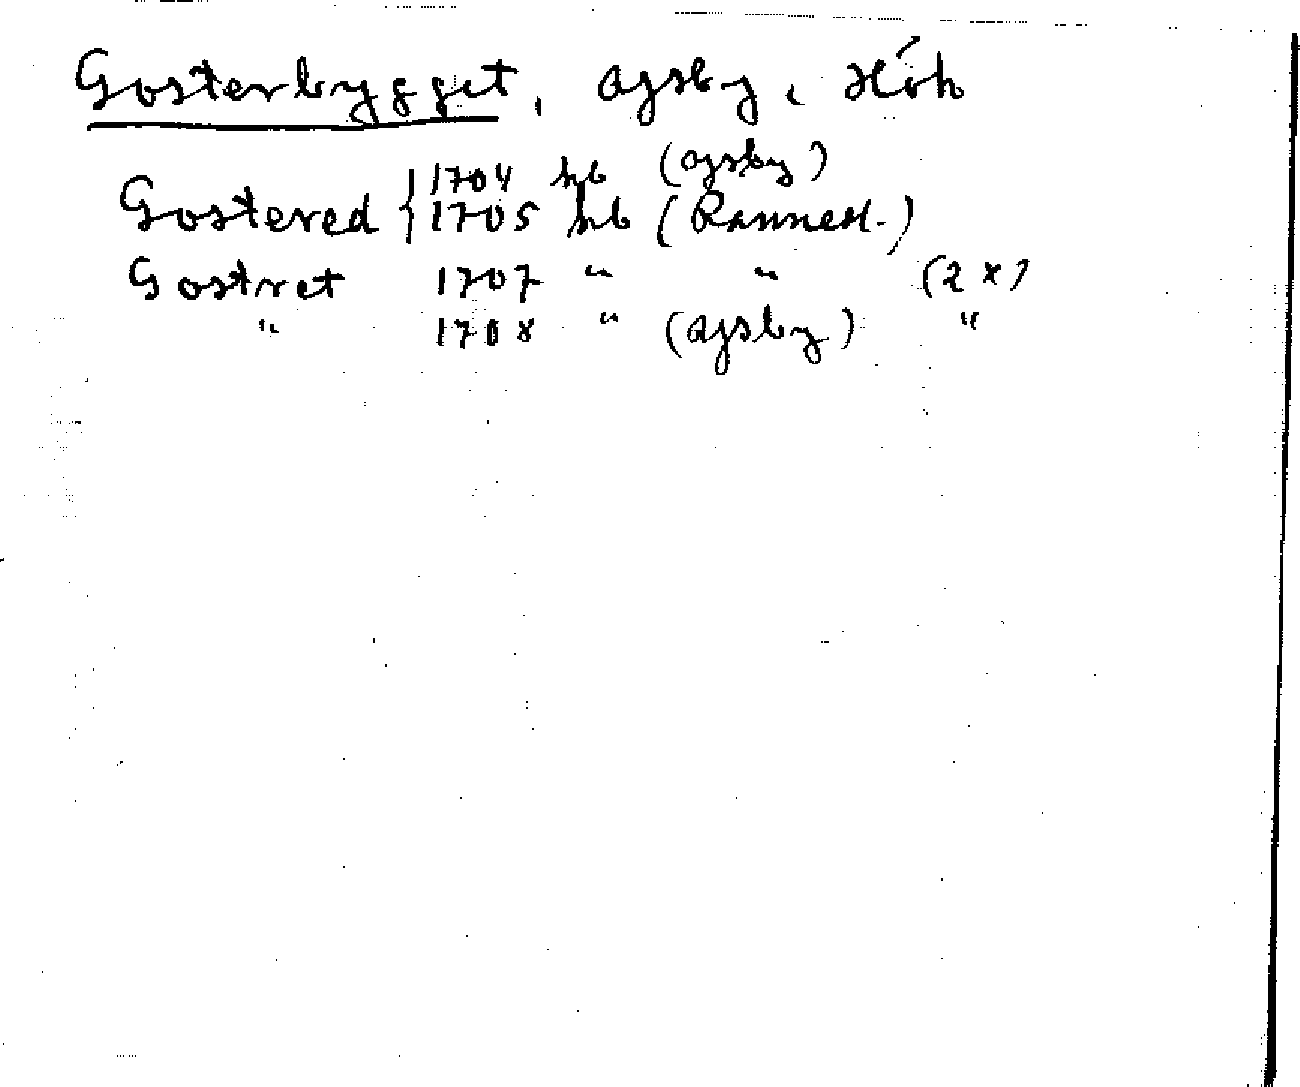 Gosterbygget, Ajsby, Höh
Gostered { 1704 hb (Ajsby)
1705 hb (Ramnest.)
Gostret 1707 " " (2 x)
" 1708 " (Ajsby) "